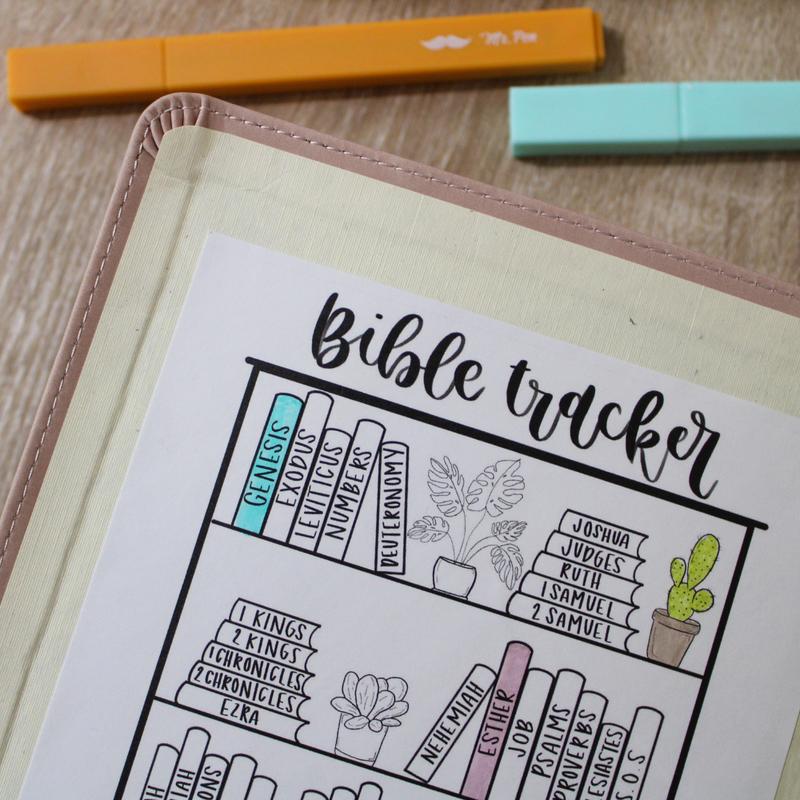 Mr. Pen
Bible tracker
GENESIS
EXODUS
LEVITICUS
NUMBERS
DEUTERONOMY
JOSHUA
JUDGES
RUTH
1 SAMUEL
2 SAMUEL
1 KINGS
2 KINGS
1 CHRONICLES
2 CHRONICLES
EZRA
NEHEMIAH
ESTHER
JOB
PSALMS
PROVERBS
LESIASTES
S.O.S